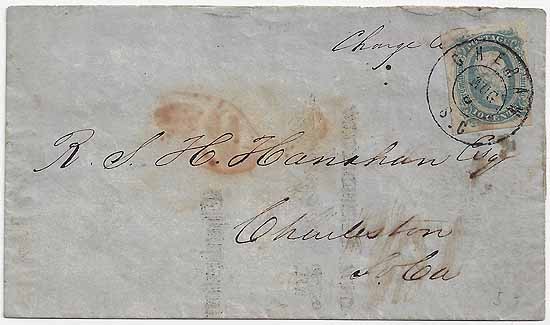 Charge
POSTAGE
CHERAW
AUG
S.C
TEN CENTS
R. S. H. Hanahan Esq
Charleston
So. Ca